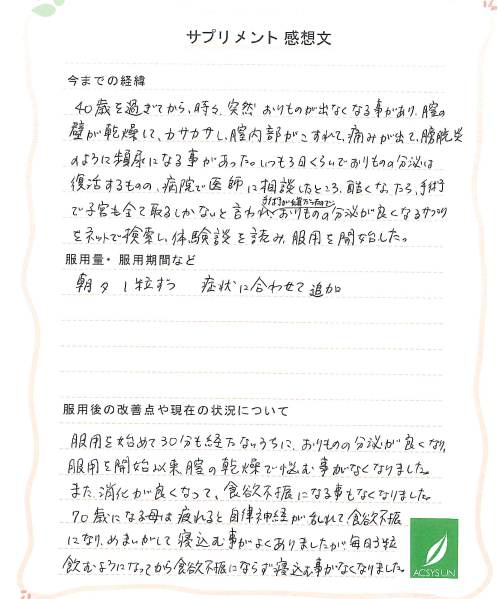 サプリメント 感想文
今までの経緯
40歳を過ぎてから、時々、突然おりものが出なくなる事があり、膣の
壁が乾燥して、カサカサし、膣内部がこすれて、痛みが出て、膀胱炎
のように頻尿になる事があった。いつも3日くらいでおりものの分泌は
復活するものの、病院で医師に相談したところ、酷くなったら、手術
で子宮も全て取るしかないと言われ、おりものの分泌が良くなるサプリ
をネットで検索し、体験談を読み、服用を開始した。
服用量・服用期間など
朝夕1粒ずつ 症状に合わせて追加
服用後の改善点や現在の状況について
服用を始めて30分も経たないうちに、おりものの分泌が良くなり、
服用を開始以来膣の乾燥で悩む事がなくなりました。
また、消化が良くなって、食欲不振になる事もなくなりました。
70歳になる母は疲れると自律神経が乱れて、食欲不振
になり、めまいがして寝込む事がよくありましたが、毎日3粒
飲むようになってから食欲不振にならず寝込む事がなくなりました。
ACSYSUN